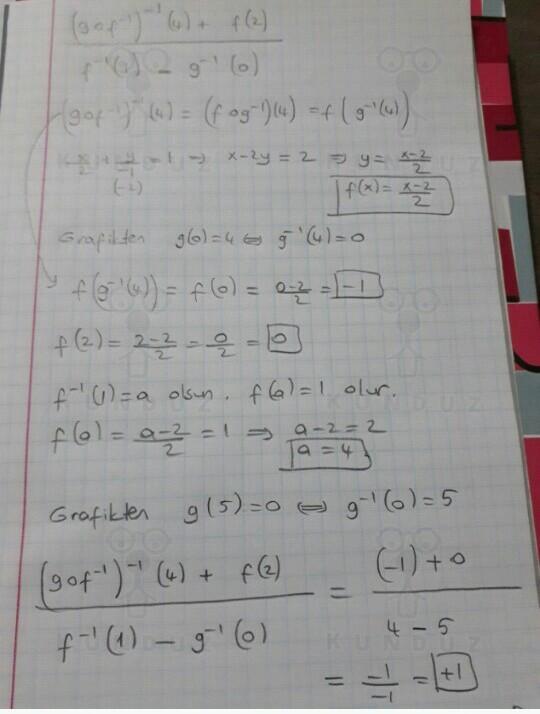 (gof⁻¹)⁻¹(4) + f(2)
f⁻¹(1) - g⁻¹(0)
(gof⁻¹)⁻¹(4) = (fog⁻¹)(4) = f(g⁻¹(4))
x/2 + y/-1 = 1 ⇒ x-2y = 2 ⇒ y = x-2/2
(-2)
f(x) = x-2/2
Grafikten g(0)=4 ⇔ g⁻¹(4)=0
f(g⁻¹(4)) = f(0) = 0-2/2 = -1
f(2) = 2-2/2 = 0/2 = 0
f⁻¹(1)=a olsun. f(a)=1 olur.
f(a) = a-2/2 = 1 ⇒ a-2=2
a=4
Grafikten g(5)=0 ⇔ g⁻¹(0)=5
(gof⁻¹)⁻¹(4) + f(2) = (-1)+0
f⁻¹(1) - g⁻¹(0) 4-5
= -1/-1 = +1
KUNDUZ